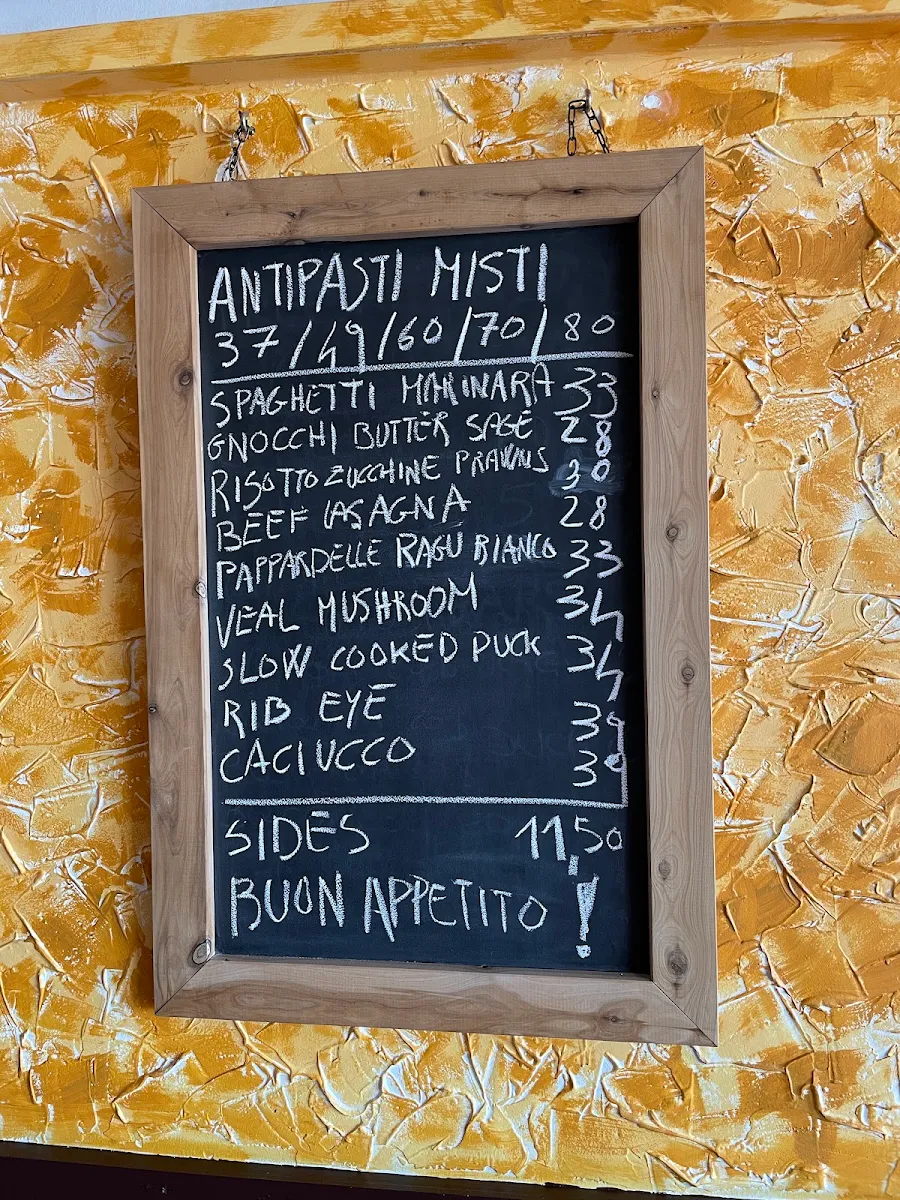 ANTIPASTI MISTI
37/49/60/70/80
SPAGHETTI MARINARA 33
GNOCCHI BUTTER SAGE 28
RISOTTO ZUCCHINE PRAWNS 30
BEEF LASAGNA 28
PAPPARDELLE RAGU BIANCO 33
VEAL MUSHROOM 34
SLOW COOKED DUCK 34
RIB EYE 39
CACIUCCO 39
SIDES 11,50
BUON APPETITO !